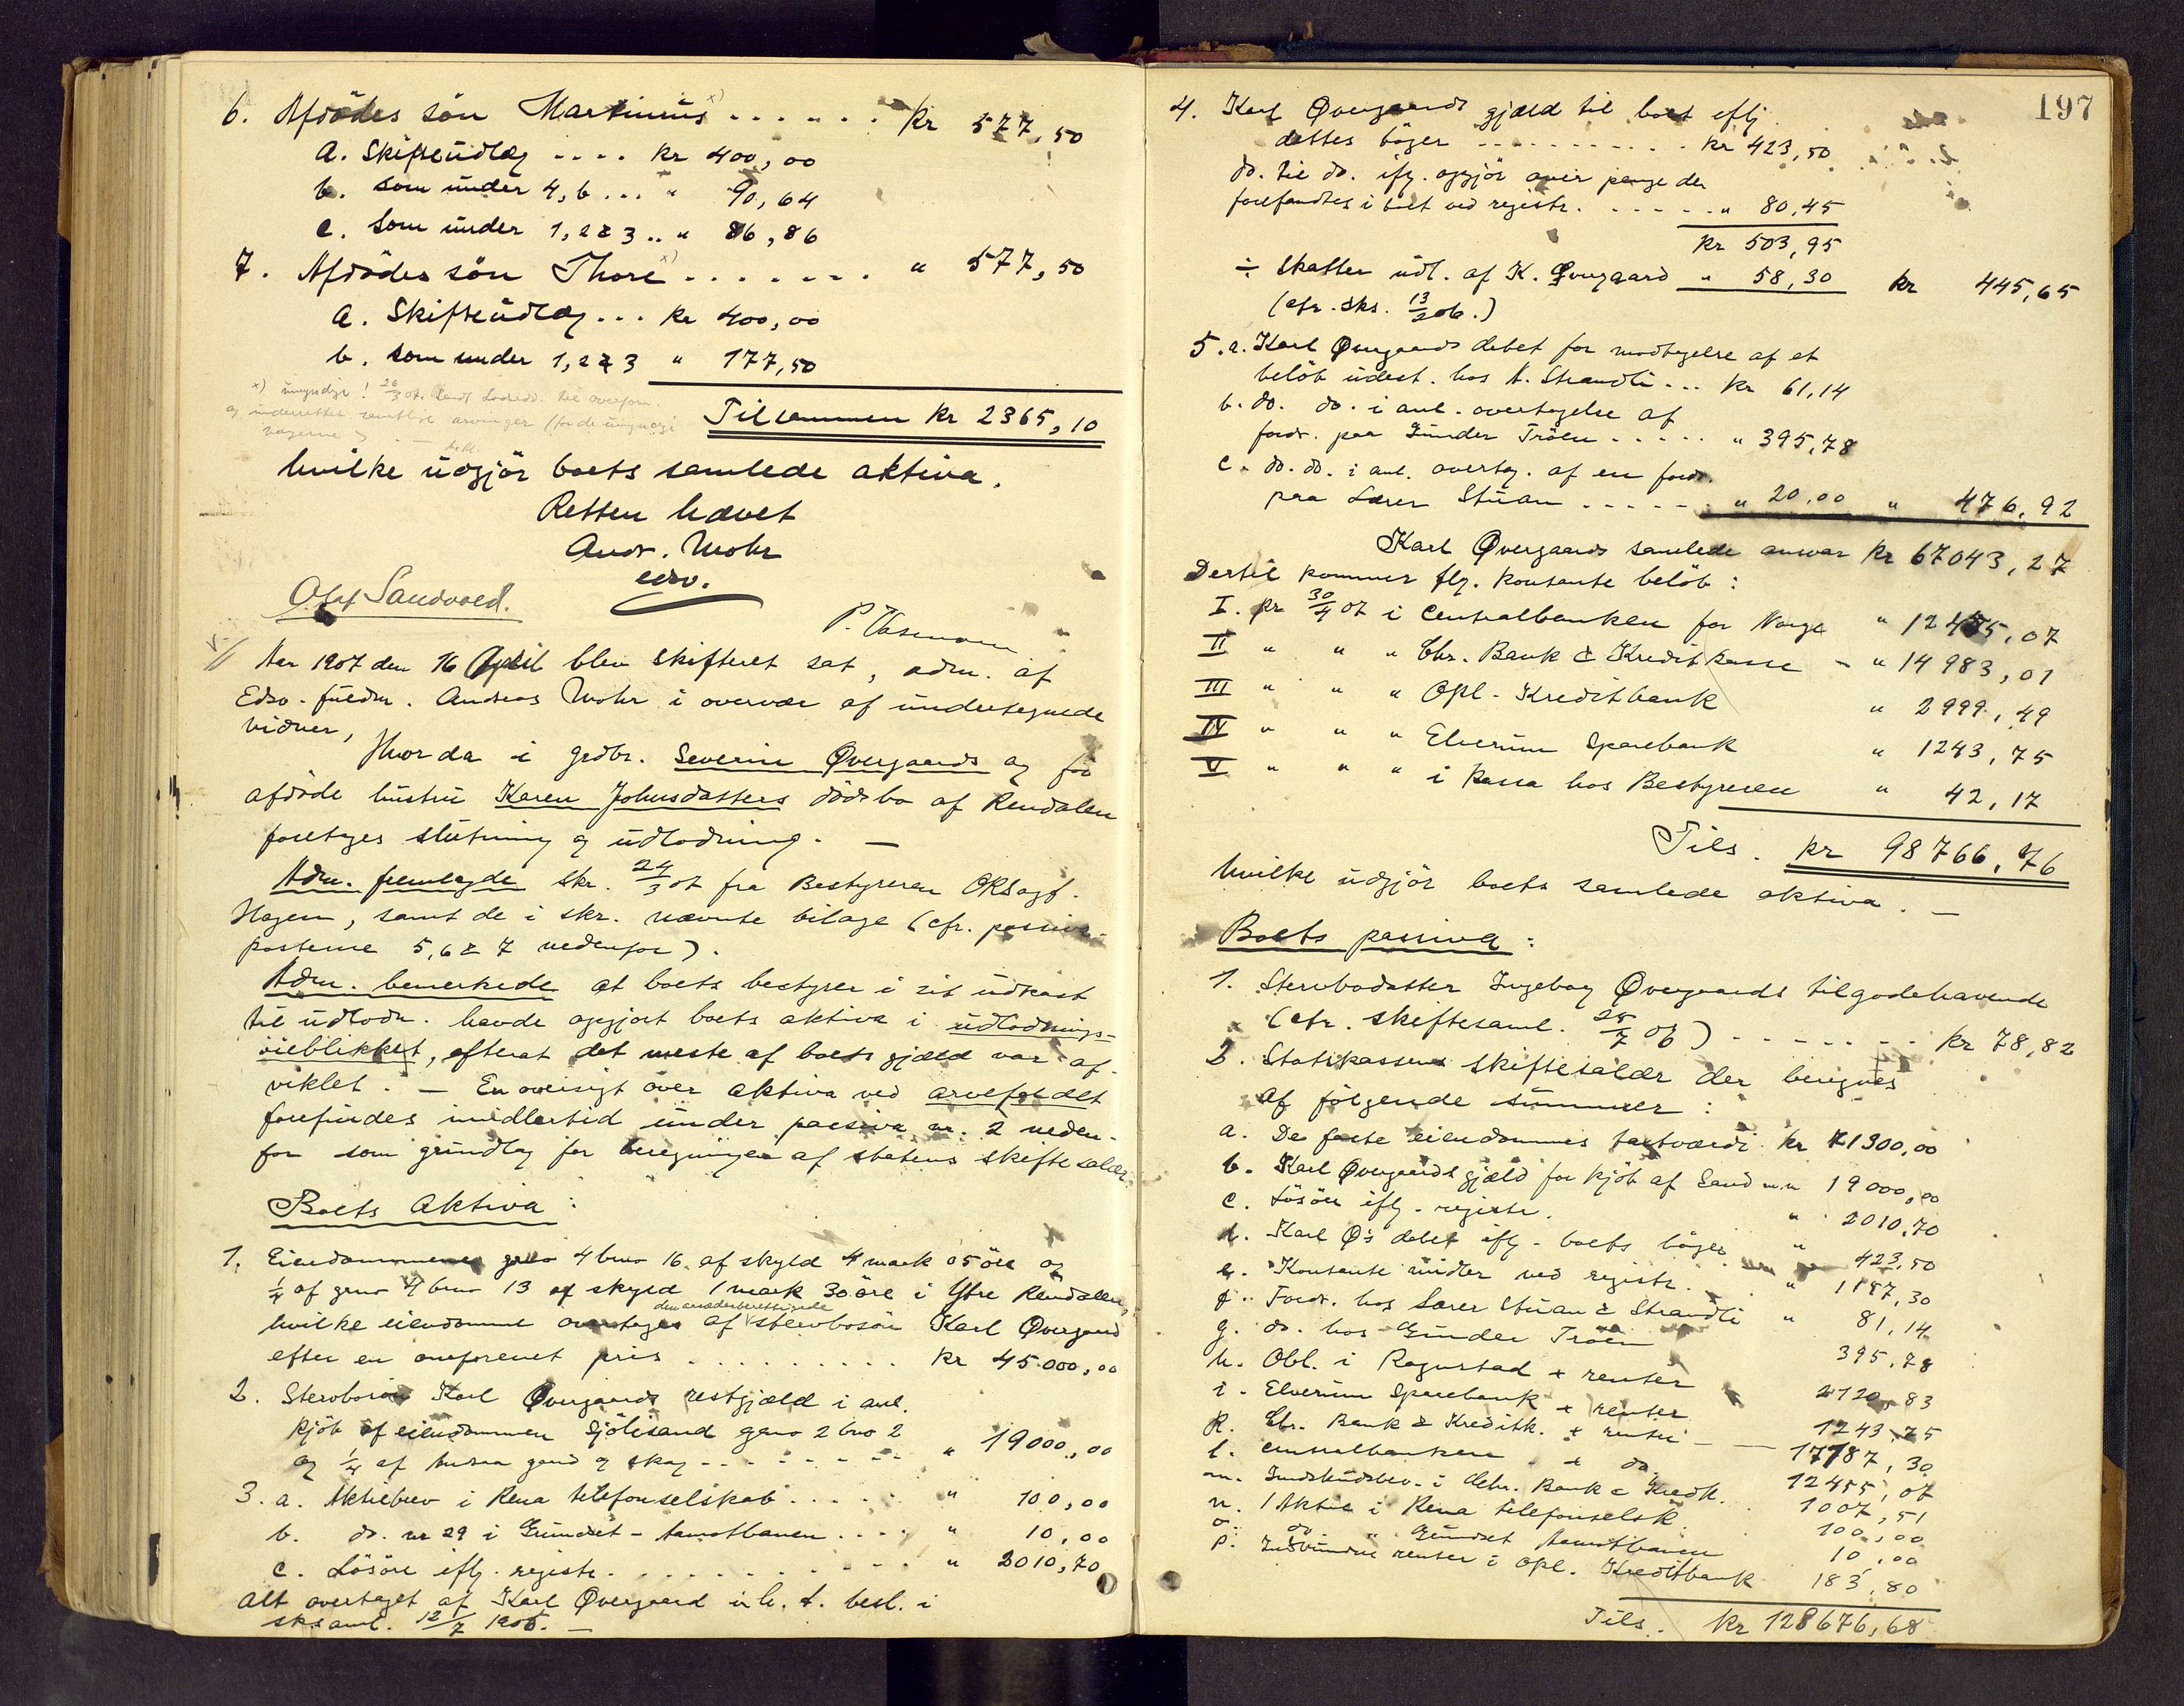 6. Afdödes sön Martinus x) . . . . . . Kr 577,50
a. Skifteudlæg .... Kr 400,00
b. som under 4,b ... " 90,64
c. som under 1,2 & 3 .. " 86,86
7. Afdödes sön Thore x) . . . . . . . " 577,50
a. Skifteudlæg ... Kr 400,00
b. som under 1,2 & 3 " 177,50
x) umyndige! 26/3 07. til overform.
og underrettet samtlige arvinger (for de umyndige
vægerne)
Tilsammen Kr 2365,10
hvilke udgjör boets samlede aktiva.
Retten hævet
Andr. Mohr
edsv.
Olaf Sandvold.
P. Aasmoen
Aar 1907 den 16 April blev skifteret sat, adm. af
Edsv. fuldm. Andreas Mohr i overvær af undertegnede
vidner,
Hvorda i grdbr. Severin Øvergaards og før
afdöde hustru Karen Johnsdatters dödsbo af Rendalen
foretoges slutning og udlodning. —
Adm. fremlagde skr. 24/3 07 fra Bestyreren OKSagf.
Hagen, samt de i skr. nævnte bilage (cfr. passiva-
posterne 5,6 & 7 nedenfor).
Adm. bemerkede at boets bestyrer i sit udkast
til udlodn. havde opgjort boets aktiva i udlodnings-
öieblikket, efterat det meste af boets gjæld var af-
viklet. — En oversigt over aktiva ved arvefaldet
forefindes imidlertid under passiva nr. 2 neden-
for som grundlag for beregningen af statens skiftesalær.
Boets aktiva:
1. Eiendommene gno 4 bno 16 af skyld 4 mark 05 öre og
1/4 af gno 4 bno 13 af skyld 1 mark 30 öre i Ytre Rendalen,
den aasædesberettigede
hvilke eiendomme overtages af stervbosön Karl Øvergaard
efter en omforenet pris . . . . . . . . . Kr 45.000,00
2. Stervbosön Karl Øvergaards restgjæld i anl.
kjöb af eiendommen Sjölisand gno 2 bno 2
og 1/4 af gaard og skog - - - - - - - " 19000,00
3. a. Aktiebrev i Rena telefonselskab . . . . . " 100,00
b. do. nr 29 i Grundset-Aamotbanen . . . . " 10,00
c. Lösöre iflg. registr. . . . . . . . . . . . " 2010,70
alt overtaget af Karl Øvergaard i h. t. besl. i
sksaml. 12/7 1905. —
197
4. Karl Øvergaards gjæld til boet iflg
dettes böger . . . . . . . . . . . Kr 423,50
do. til do. iflg. opgjör over penge der
forefandtes i boet ved registr. . . . . . . " 80,45
Kr 503,95
÷ Skatter udl. af K. Øvergaard " 58,30 Kr 445,65
(cfr. sks. 13/2 06.)
5. a. Karl Øvergaards debet for modtagelse af et
belöb udest. hos N. Strandli ... Kr 61,14
b. do. do. i anl. overtagelse af
fordr. paa Gunder Tröen . . . . . " 395,78
c. do. do. i anl. overtag. af en fordr.
paa Lærer Stuan . . . . . . " 20,00 " 476,92
Karl Øvergaards samlede ansvar Kr 67043,27
Dertil kommer flg. kontante belöb:
I. pr 30/4 07 i Centralbanken for Norge " 12455,07
II " " " Chr. Bank & Kreditkasse - " 14983,01
III " " " Opl. Kreditbank " 2999,49
IV " " " Elverum Sparebank " 1243,75
V " " " i kassa hos Bestyreren " 42,17
Tils. Kr 98766,76
hvilke udgjör boets samlede aktiva. —
Boets passiva:
1. Stervbodatter Ingeborg Øvergaards tilgodehavende
(cfr. skiftesaml. 25/7 06) - - - - - - - Kr 78,82
2. Statskassens skiftesalær der beregnes
af fölgende summer:
a. De faste eiendommes taxtværdi Kr 71300,00
b. Karl Øvergaards gjæld for kjöb af Sand m.m 19000,00
c. Lösöre iflg. registr. " 2010,70
d. Karl Ø's debet iflg. boets böger " 423,50
e. Kontante midler ved registr. " 1157,30
f. Fordr. hos Lærer Stuan & Strandli " 81,14
g. do. hos Gunder Tröen 395,78
h. Obl. i Rognstad + renter 2120,83
i. Elverum Sparebank + renter 1243,75
k. Chr. Bank & Kreditk. + renter - — 17187,30
l. Centralbanken + do. 12455,07
m. Indskudsbev. i Chr. Bank & Kredk. 1007,51
n. 1 Aktie i Rena telefonselsk. 100,00
o. do " Grundset Aamotbanen 10,00
p. Indvundne renter i Opl. Kreditbank 183,80
Tils. Kr 128676,68